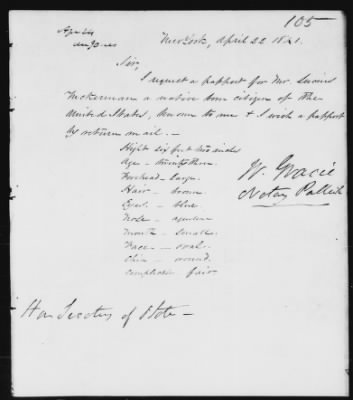 105
New York, April 22 1841.
Sir,
I request a passport for Mr. Lucius
Tuckerman a native born citizen of the
United States, known to me & I wish a passport
by return mail. —
Hight six feet two inches
Age — twenty three.
Forehead — large.
Hair — brown
Eyes — blue.
Nose — aquiline
Mouth — small.
Face — oval.
Chin — round.
Complexion fair
W. Gracie
Notary Public
Hon Secretary of State —